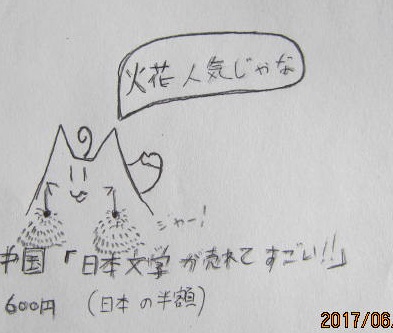 火花人気じゃな
ジャー!
中国「日本文学が売れてすごい!!」
600円 (日本の半額)
2017/06.